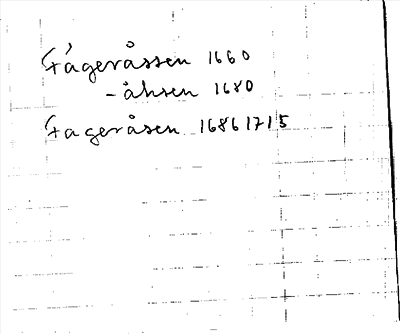 Fågeråssen 1660
-åhsen 1680
Fageråsen 1686 1715